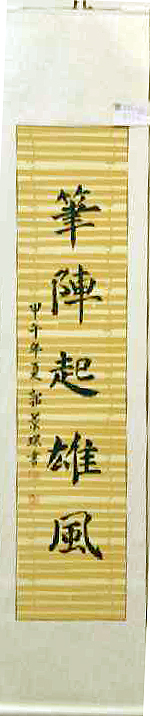 筆陣起雄風
甲午年夏郭景璇書